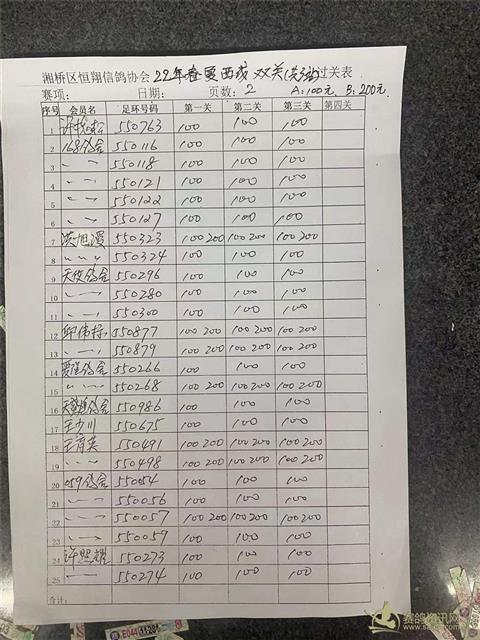 湘桥区恒翔信鸽协会 22年春夏西成 双关 过关表
赛项: 日期: 页数: 2 A:100元 B:200元
序号 会员名 足环号码 第一关 第二关 第三关 第四关
1 550763 100 100 100
2 168鸽舍 550116 100 100 100
3 〃 550118 100 100 100
4 〃 550121 100 100 100
5 〃 550122 100 100 100
6 〃 550127 100 100 100
7 550323 100 200 100 200 100 200
8 〃 550324 100 100 100
9 天俊鸽舍 550296 100 100 100
10 〃 550280 100 100 100
11 〃 550300 100 100 100
12 邱伟标 550877 100 200 100 200 100 200
13 〃 550879 100 200 100 200 100 200
14 鸽舍 550266 100 100 100
15 〃 550268 100 200 100 200 100 200
16 鸽舍 550986 100 100 100
17 王少川 550675 100 100 100
18 王育英 550491 100 200 100 200 100 200
19 〃 550498 100 200 100 200 100 200
20 059鸽舍 550054 100 100 100
21 〃 550056 100 100 100
22 〃 550057 100 200 100 200 100 200
23 〃 550059 100 100 100
24 许照耀 550273 100 100 100
25 〃 550274 100 100 100
合计:
E044 11201
赛鸽资讯网